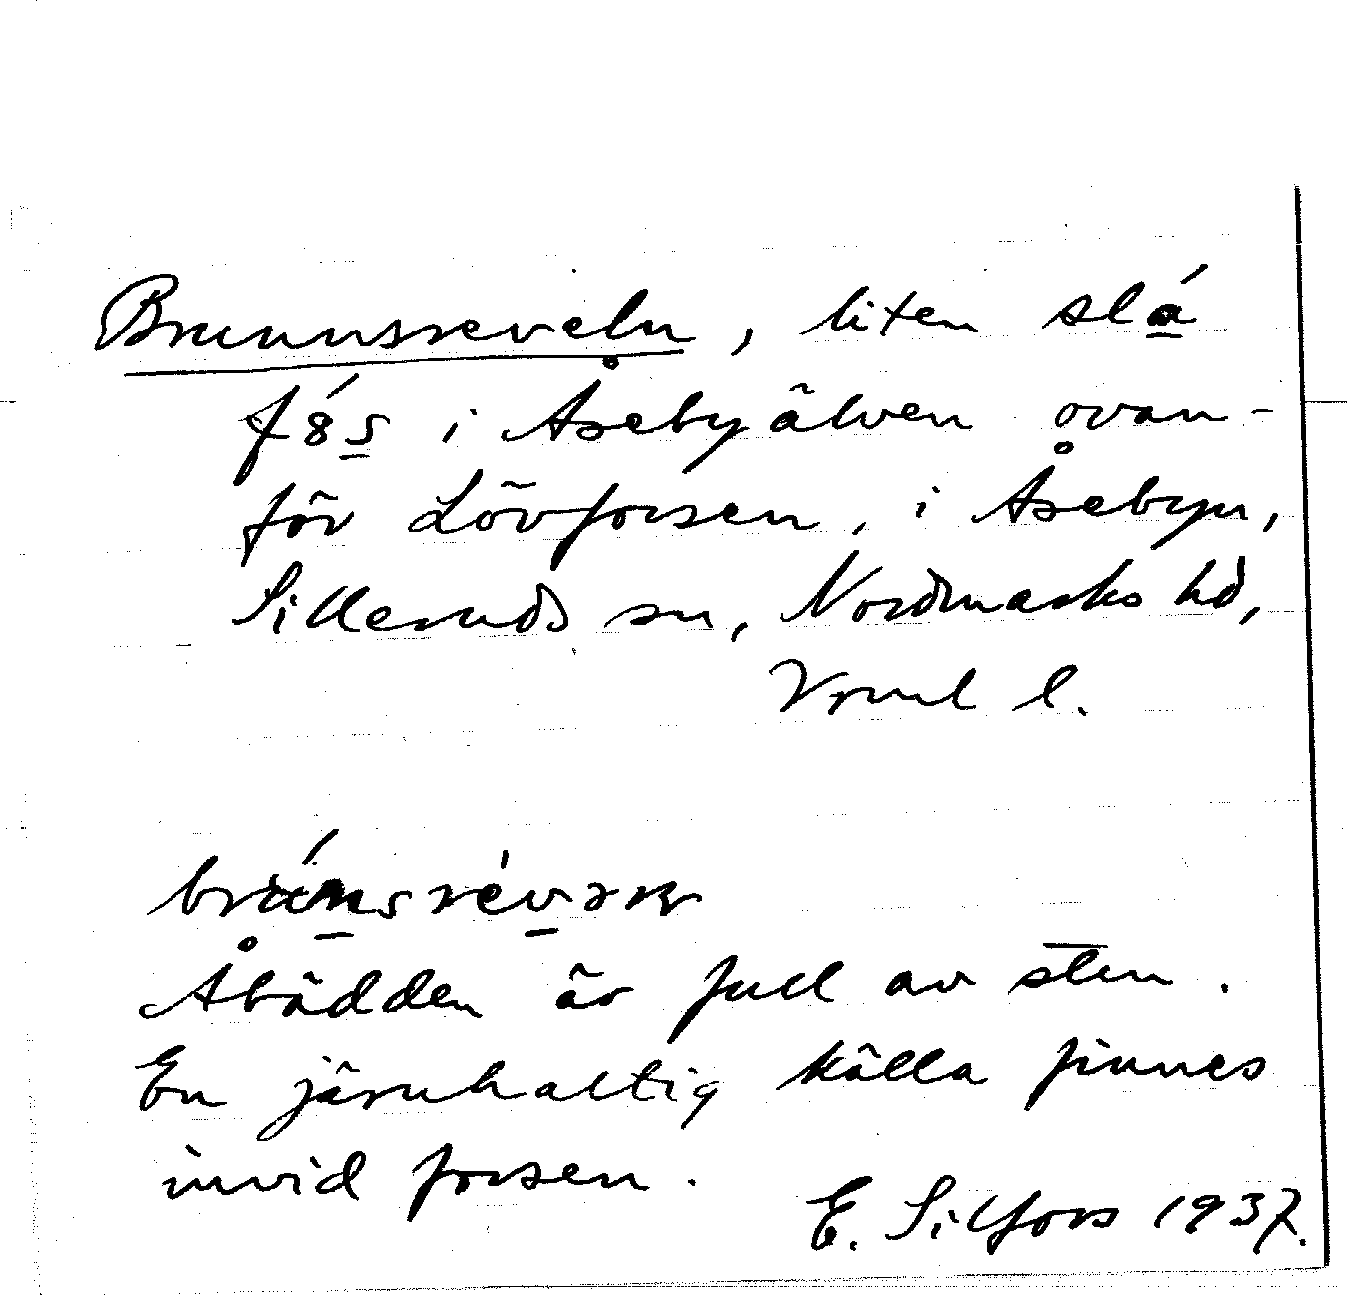 Brunnsreveln, liten slá
fó̱s i Åsebyälven ovan-
för Lövforsen, i Åsebyn,
Silleruds sn, Nordmarks hd,
Vrml l.
Åbädden är full av sten.
En järnhaltig källa finnes
invid forsen.
E. Silfors 1937.